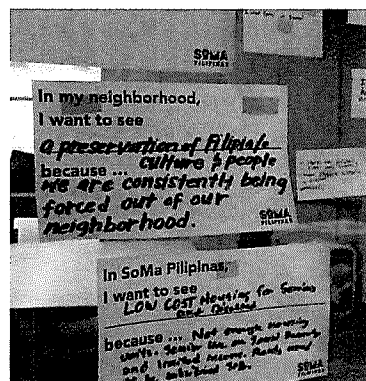 SOMA
PILIPINAS
In my neighborhood,
I want to see
a preservation of Filipinx
culture & people
because ...
we are consistently being
forced out of our
neighborhood.
SOMA
PILIPINAS
In SoMa Pilipinas,
I want to see
LOW COST Housing for Seniors
and Disabled
because ... Not enough housing
units. Seniors live on fixed
and limited income.
SOMA
PILIPINAS